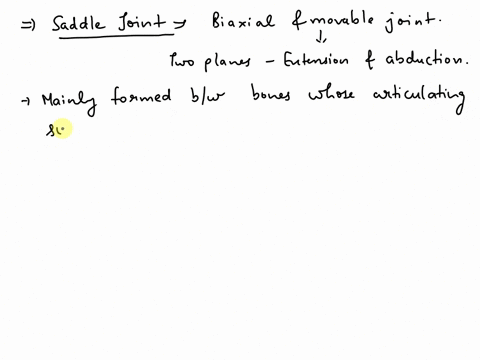 ⇒ Saddle Joint → Biaxial & movable joint.
↓
Two planes - Extension & abduction.
→ Mainly formed b/w bones whose articulating